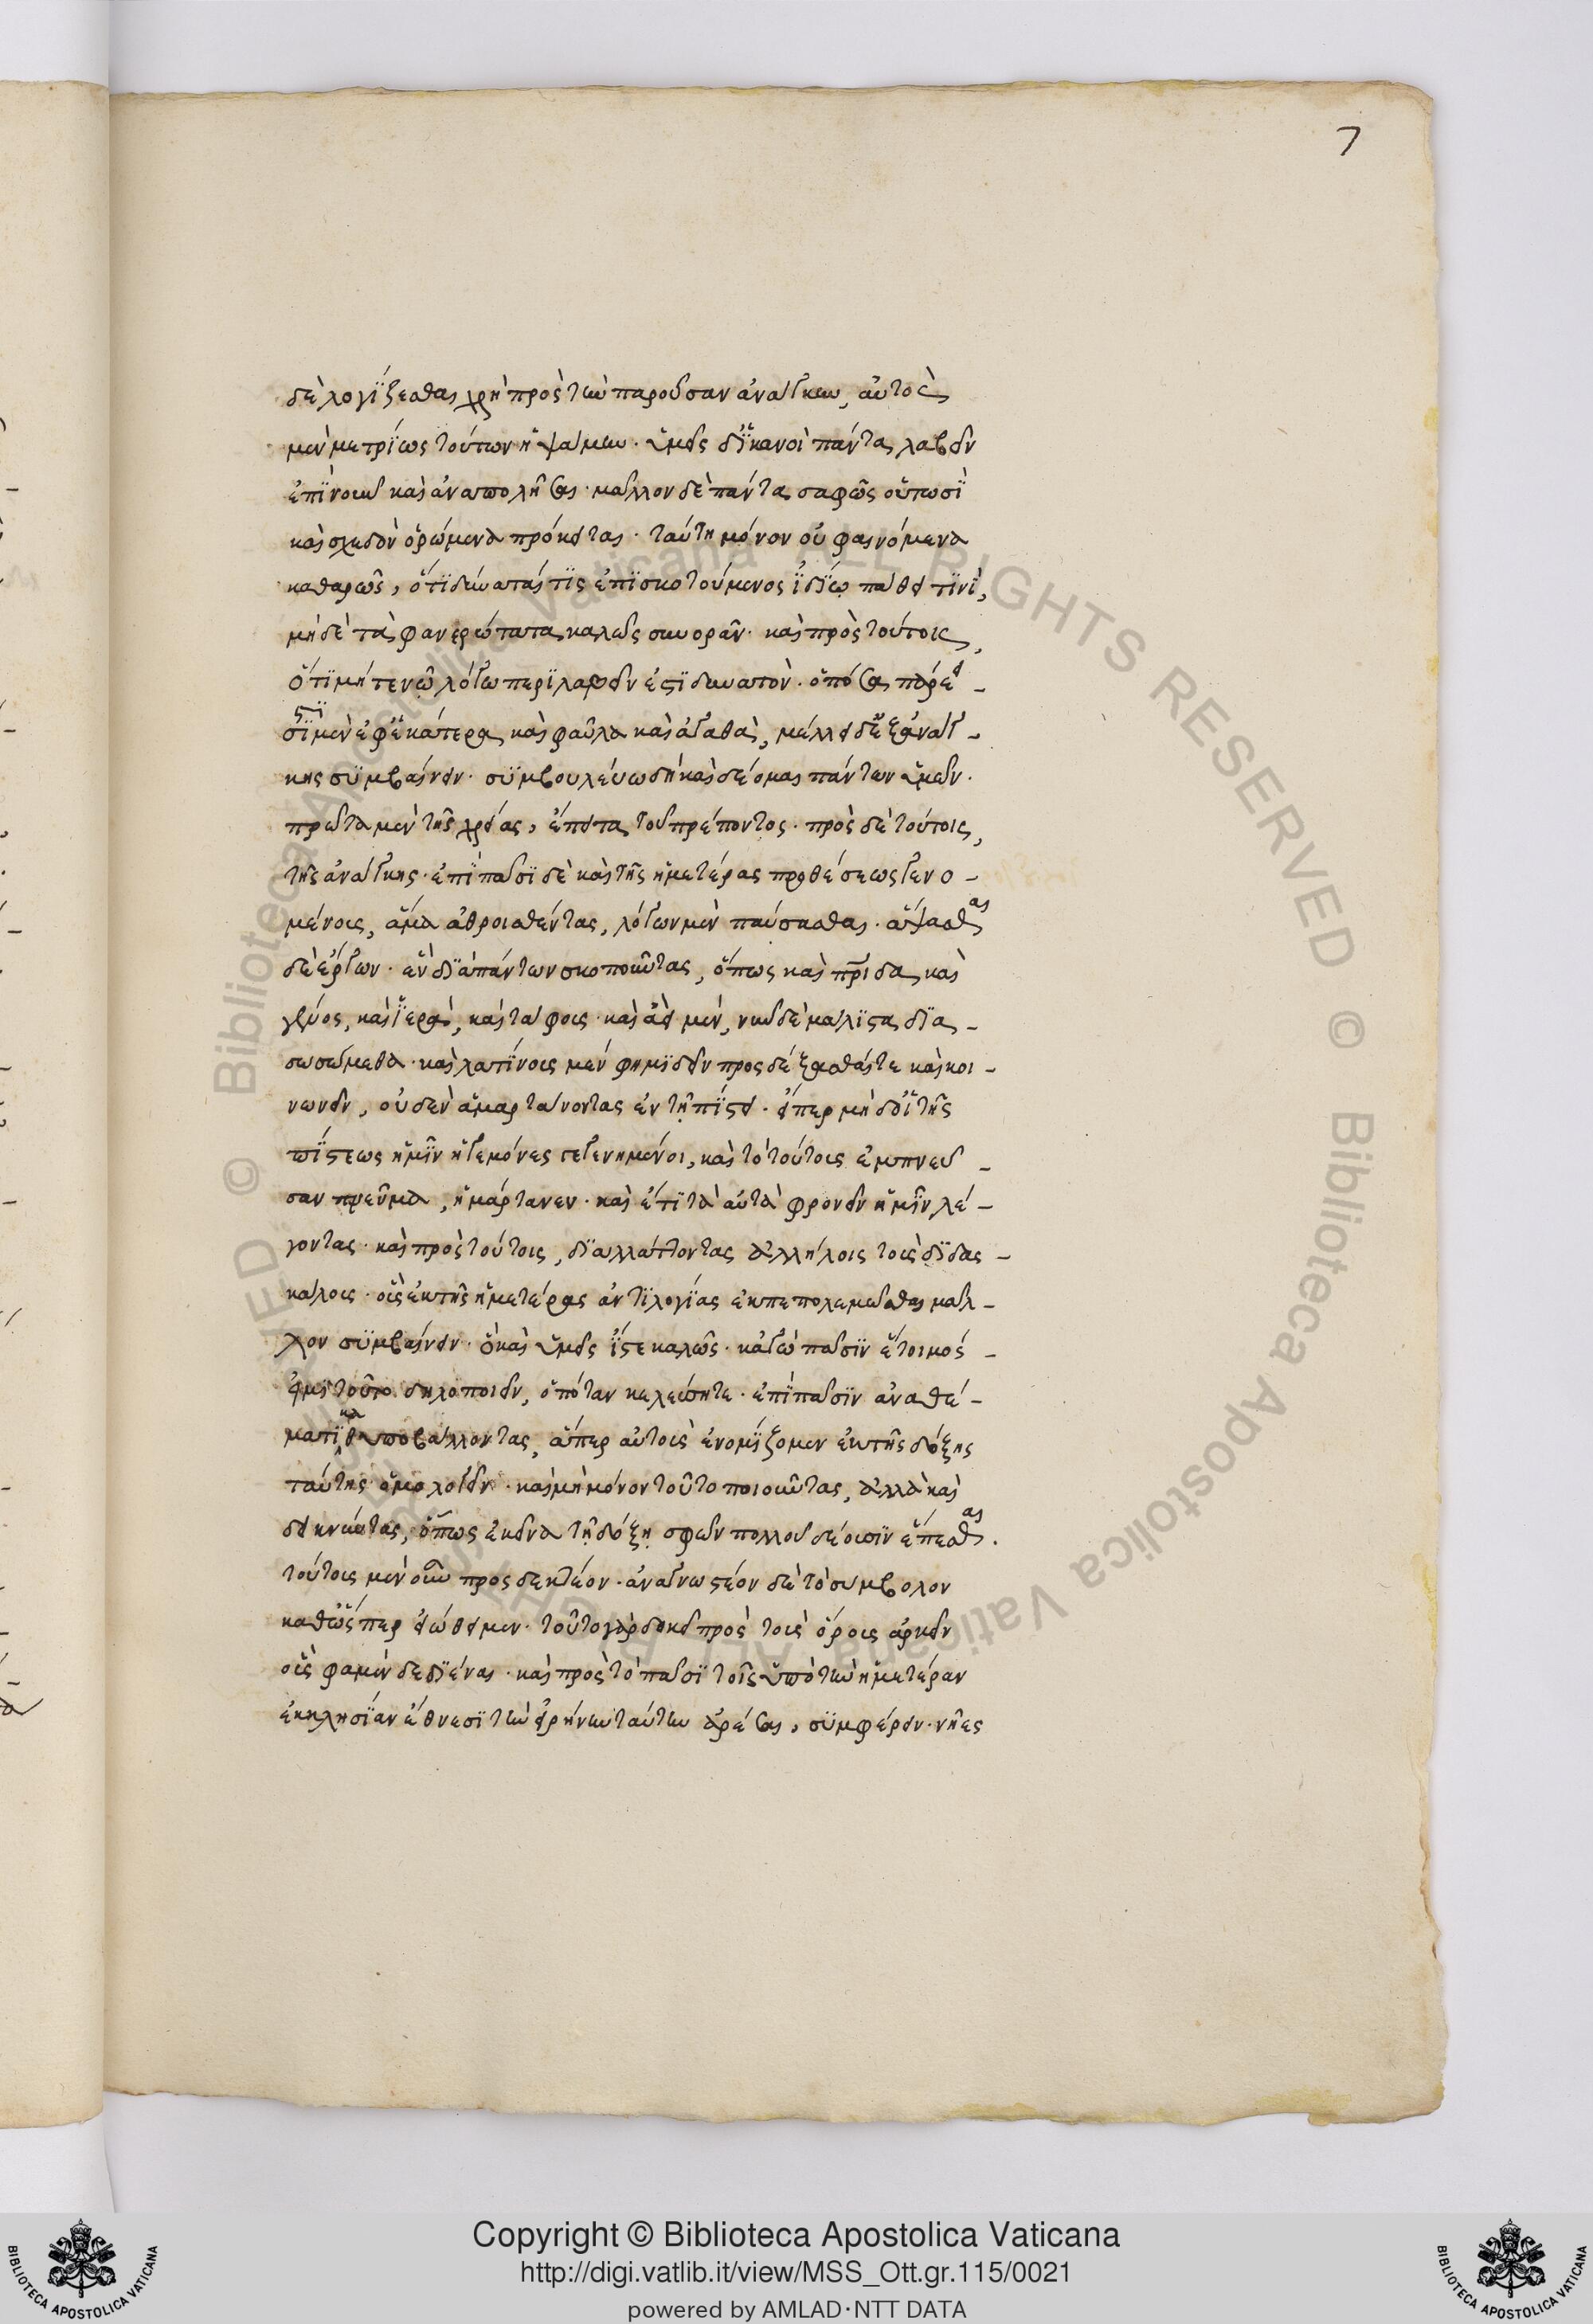 7
δὲ λογίζεσθαι χρὴ πρὸς τὴν παροῦσαν ἀνάγκην, αὐτὸς
μὲν μετρίως τούτων ἡψάμην. ὑμεῖς δ' ἱκανοὶ πάντα λαβεῖν
ἐπὶ νοῦν καὶ ἀναπολῆσαι. μᾶλλον δὲ πάντα σαφῶς οὑτωσὶ
καὶ σχεδὸν ὁρώμενα πρόκειται. ταύτῃ μόνον οὐ φαινόμενα
καθαρῶς, ὅτι δύναταί τις ἐπισκοτούμενος ἰδίῳ πάθει τινὶ,
μηδὲ τὰ φανερώτατα καλῶς συνορᾶν. καὶ πρὸς τούτοις,
ὅτι μήτ' ἐν ᾧ λόγῳ περιλαβεῖν ἐστι δυνατὸν. ὁπόσα πάρει-
σὶ μὲν ἐφ' ἑκάτερα καὶ φαῦλα καὶ ἀγαθὰ, μέλλει δ' ἐξ ἀνάγ-
στι
κης συμβαίνειν. συμβουλεύω δὴ καὶ δέομαι πάντων ὑμῶν.
πρῶτα μὲν τῆς χρείας, ἔπειτα τοῦ πρέποντος. πρὸς δὲ τούτοις,
τῆς ἀνάγκης. ἐπὶ πᾶσι δὲ καὶ τῆς ἡμετέρας προθέσεως γενο-
μένοις, ἅμα ἀθροισθέντας, λόγων μὲν παύσασθαι. ἅψασθαι
δὲ ἔργων. ἓν δι' ἁπάντων σκοποῦντας, ὅπως καὶ πρίδα καὶ
γένος, καὶ ἱερὰ, καὶ τάφοις. καὶ ἀεὶ μὲν, νῦν δὲ μάλιστα δια-
σωσώμεθα. καὶ λατίνοις μέν φημι δεῖν προςδέξασθαί τε καὶ κοι-
νωνεῖν, οὐδὲν ἁμαρτάνοντας ἐν τῇ πίστει. εἴπερ μηδ' οἱ τῆς
πίστεως ἡμῖν ἡγεμόνες γεγενημένοι, καὶ τὸ τούτοις ἐμπνεῦ-
σαν πνεῦμα, ἡμάρτανεν. καὶ ἔτι τὰ αὐτὰ φρονεῖν ἡμῖν λέ-
γοντας. καὶ πρὸς τούτοις, διαλλάττοντας ἀλλήλοις τοὺς διδας-
κάλοις. οἷς ἐκ τῆς ἡμετέρας ἀντιλογίας ἐκπεπολεμῶσθαι μᾶλ-
λον συμβαίνειν. ὃ καὶ ὑμεῖς ἴστε καλῶς. κἀγὼ πᾶσιν ἕτοιμός
εἰμι τοῦτο δηλοποιεῖν, ὁπόταν κελεύσητε. ἐπὶ πᾶσιν ἀναθέ-
ματι καθυποβάλλοντας, ἅπερ αὐτοὺς ἐνομίζομεν ἐκ τῆς δόξης
ταύτης ὁμολογεῖν. καὶ μὴ μόνον τοῦτο ποιοῦντας, ἀλλὰ καὶ
δεικνύντας, ὅπως ἐκεῖνα τῇ δόξῃ σφῶν πολλοῦ δέουσιν ἕπεσθαι.
τούτοις μὲν οὖν προςδεκτέον. ἀναγνωστέον δὲ τὸ σύμβολον
καθὼςπερ εἰώθειμεν. τοῦτο γὰρ δοκεῖ πρὸς τοὺς ὅροις ἀρκεῖν
οἷς φαμὲν δεδιέναι. καὶ πρὸς τὸ πᾶσι τοῖς ὑπὸ τὴν ἡμετέραν
ἐκκλησίαν ἔθνεσι τὴν εἰρήνην ταύτην ἀρέσαι, συμφέρειν. νῆες
Copyright © Biblioteca Apostolica Vaticana
http://digi.vatlib.it/view/MSS_Ott.gr.115/0021
powered by AMLAD·NTT DATA